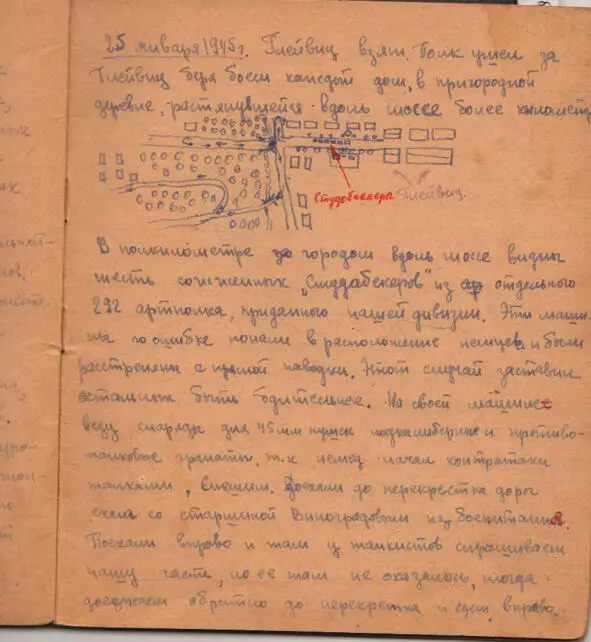 25 января 1945г. Глейвиц взят. Полк ушел за
Глейвиц беря боем каждый дом, в пригородной
деревне, растянувшейся вдоль шоссе более километр
Студобеккера Глейвиц.
В полкилометре за городом вдоль шоссе видны
шесть сожженных "Студабекеров" из отдельного
292 артполка, приданного нашей дивизии. Эти маши-
ны по ошибке попали в расположение немцев и были
расстреляны с прямой наводки. Этот случай заставил
остальных быть бдительнее. На своей машине
везу снаряды для 45 мм пушек подкалиберные и противо-
танковые гранаты, т.к немец начал контратаки
танками. Спешим. Доехали до перекрестка дорог
ехал со старшиной Виноградовым из боепитания.
Поехали вправо и там у танкистов спрашиваем
нашу часть, но ее там не оказалось, тогда
доезжаем обратно до перекрестка и едем вправо.